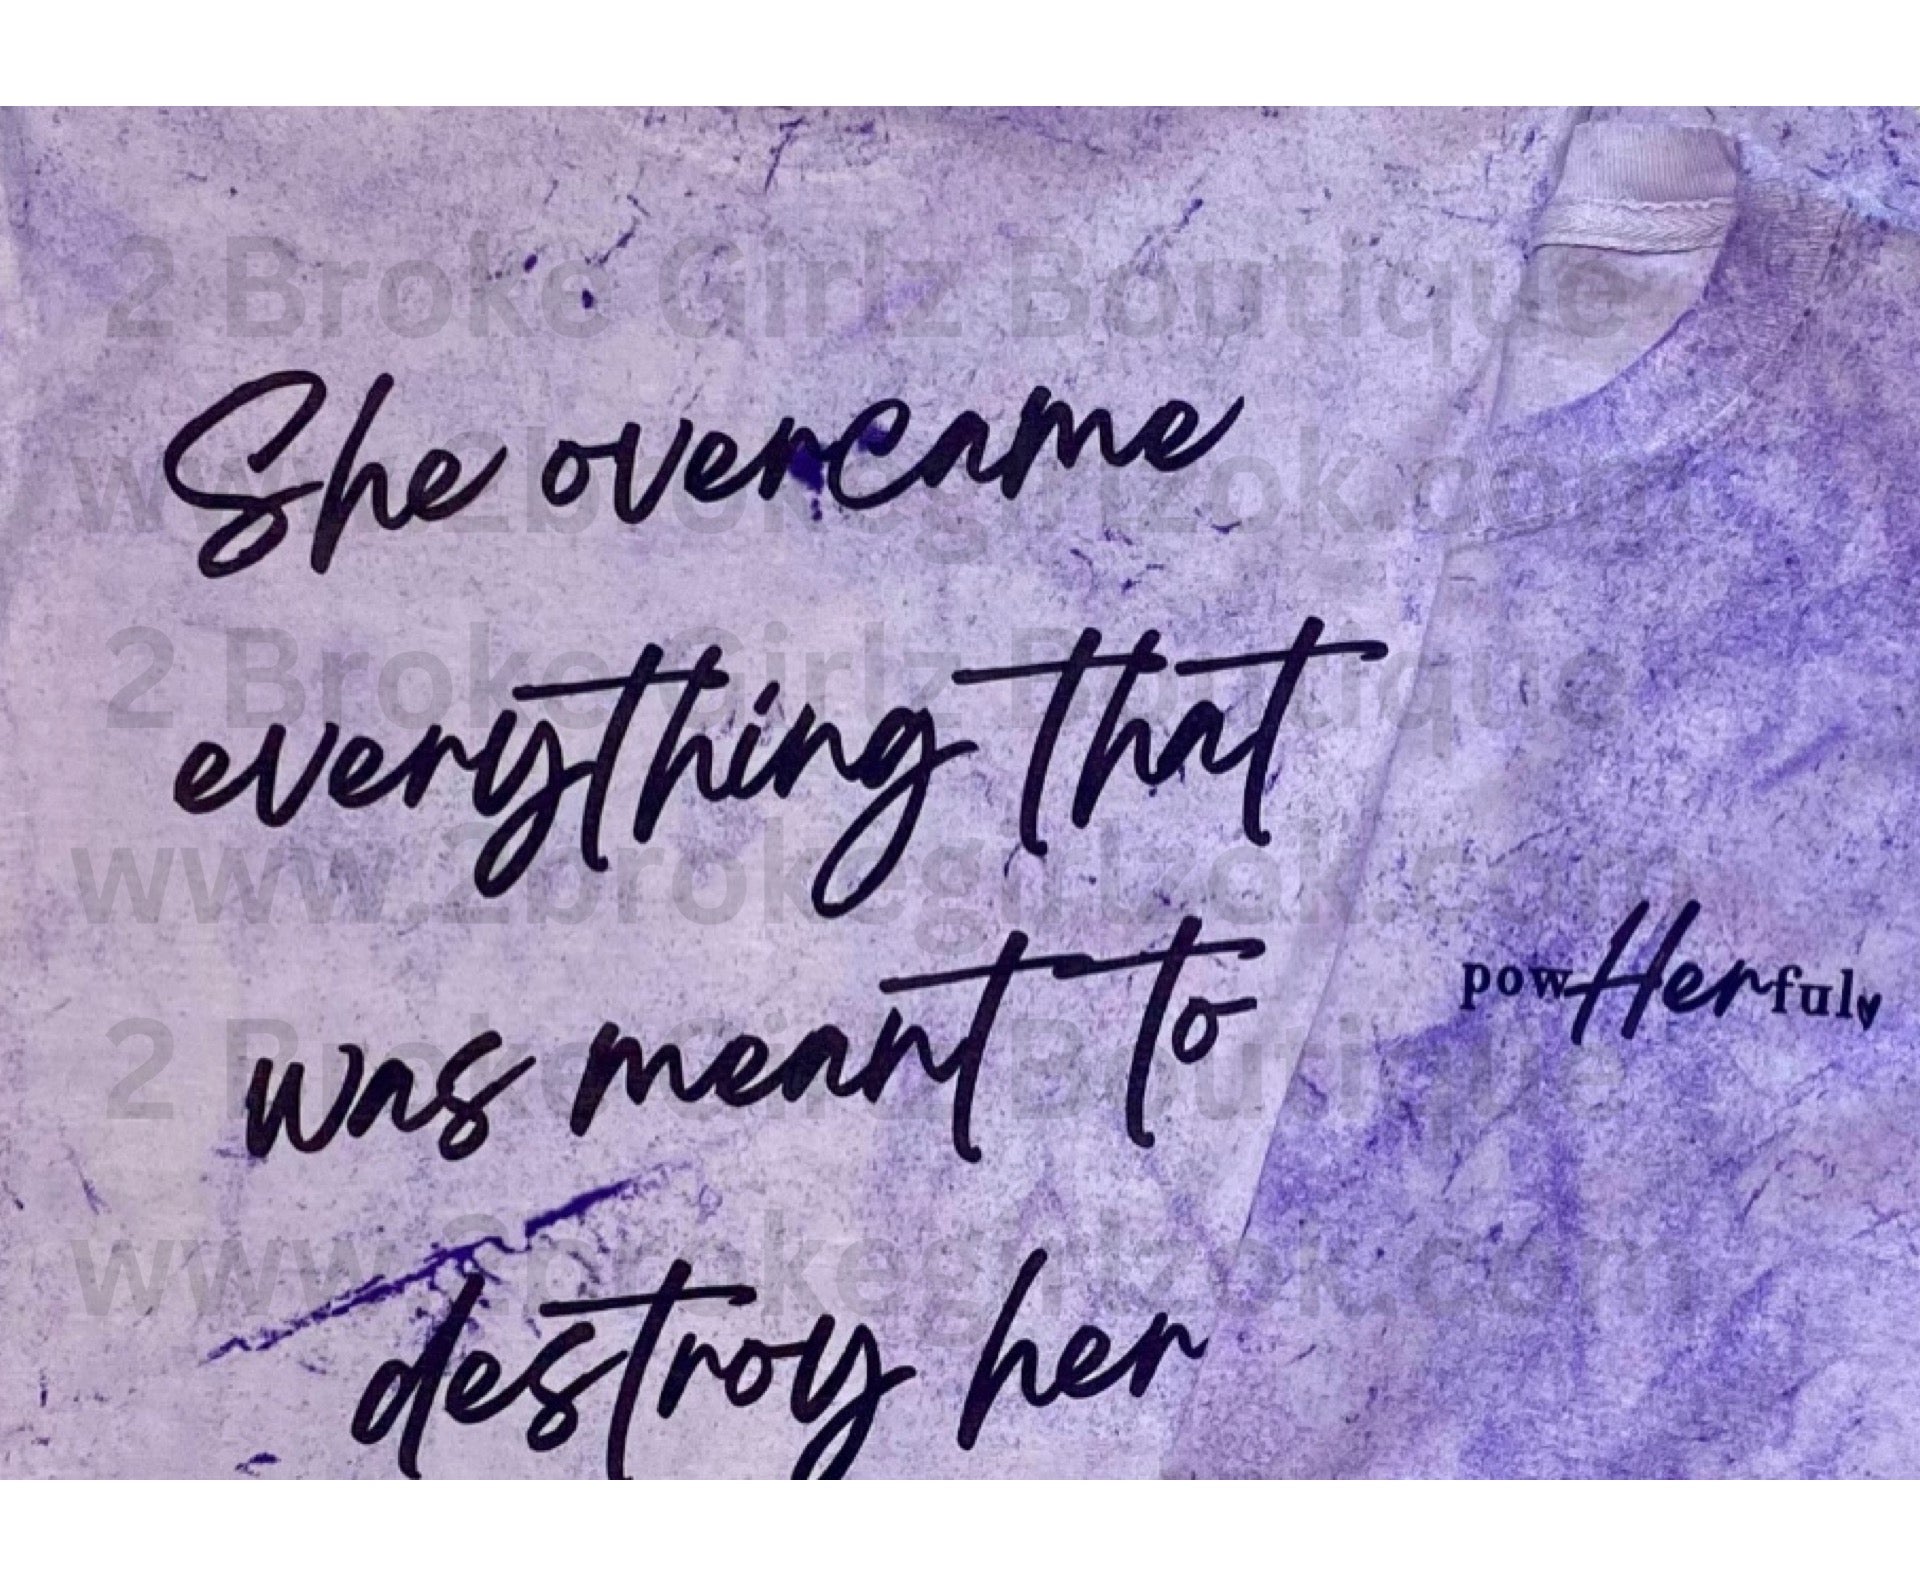 She overcame
everything that
was meant to
destroy her
powHerful
2 Broke Girlz Boutique
www.2brokegirlzok.com
2 Broke Girlz Boutique
www.2brokegirlzok.com
2 Broke Girlz Boutique
www.2brokegirlzok.com